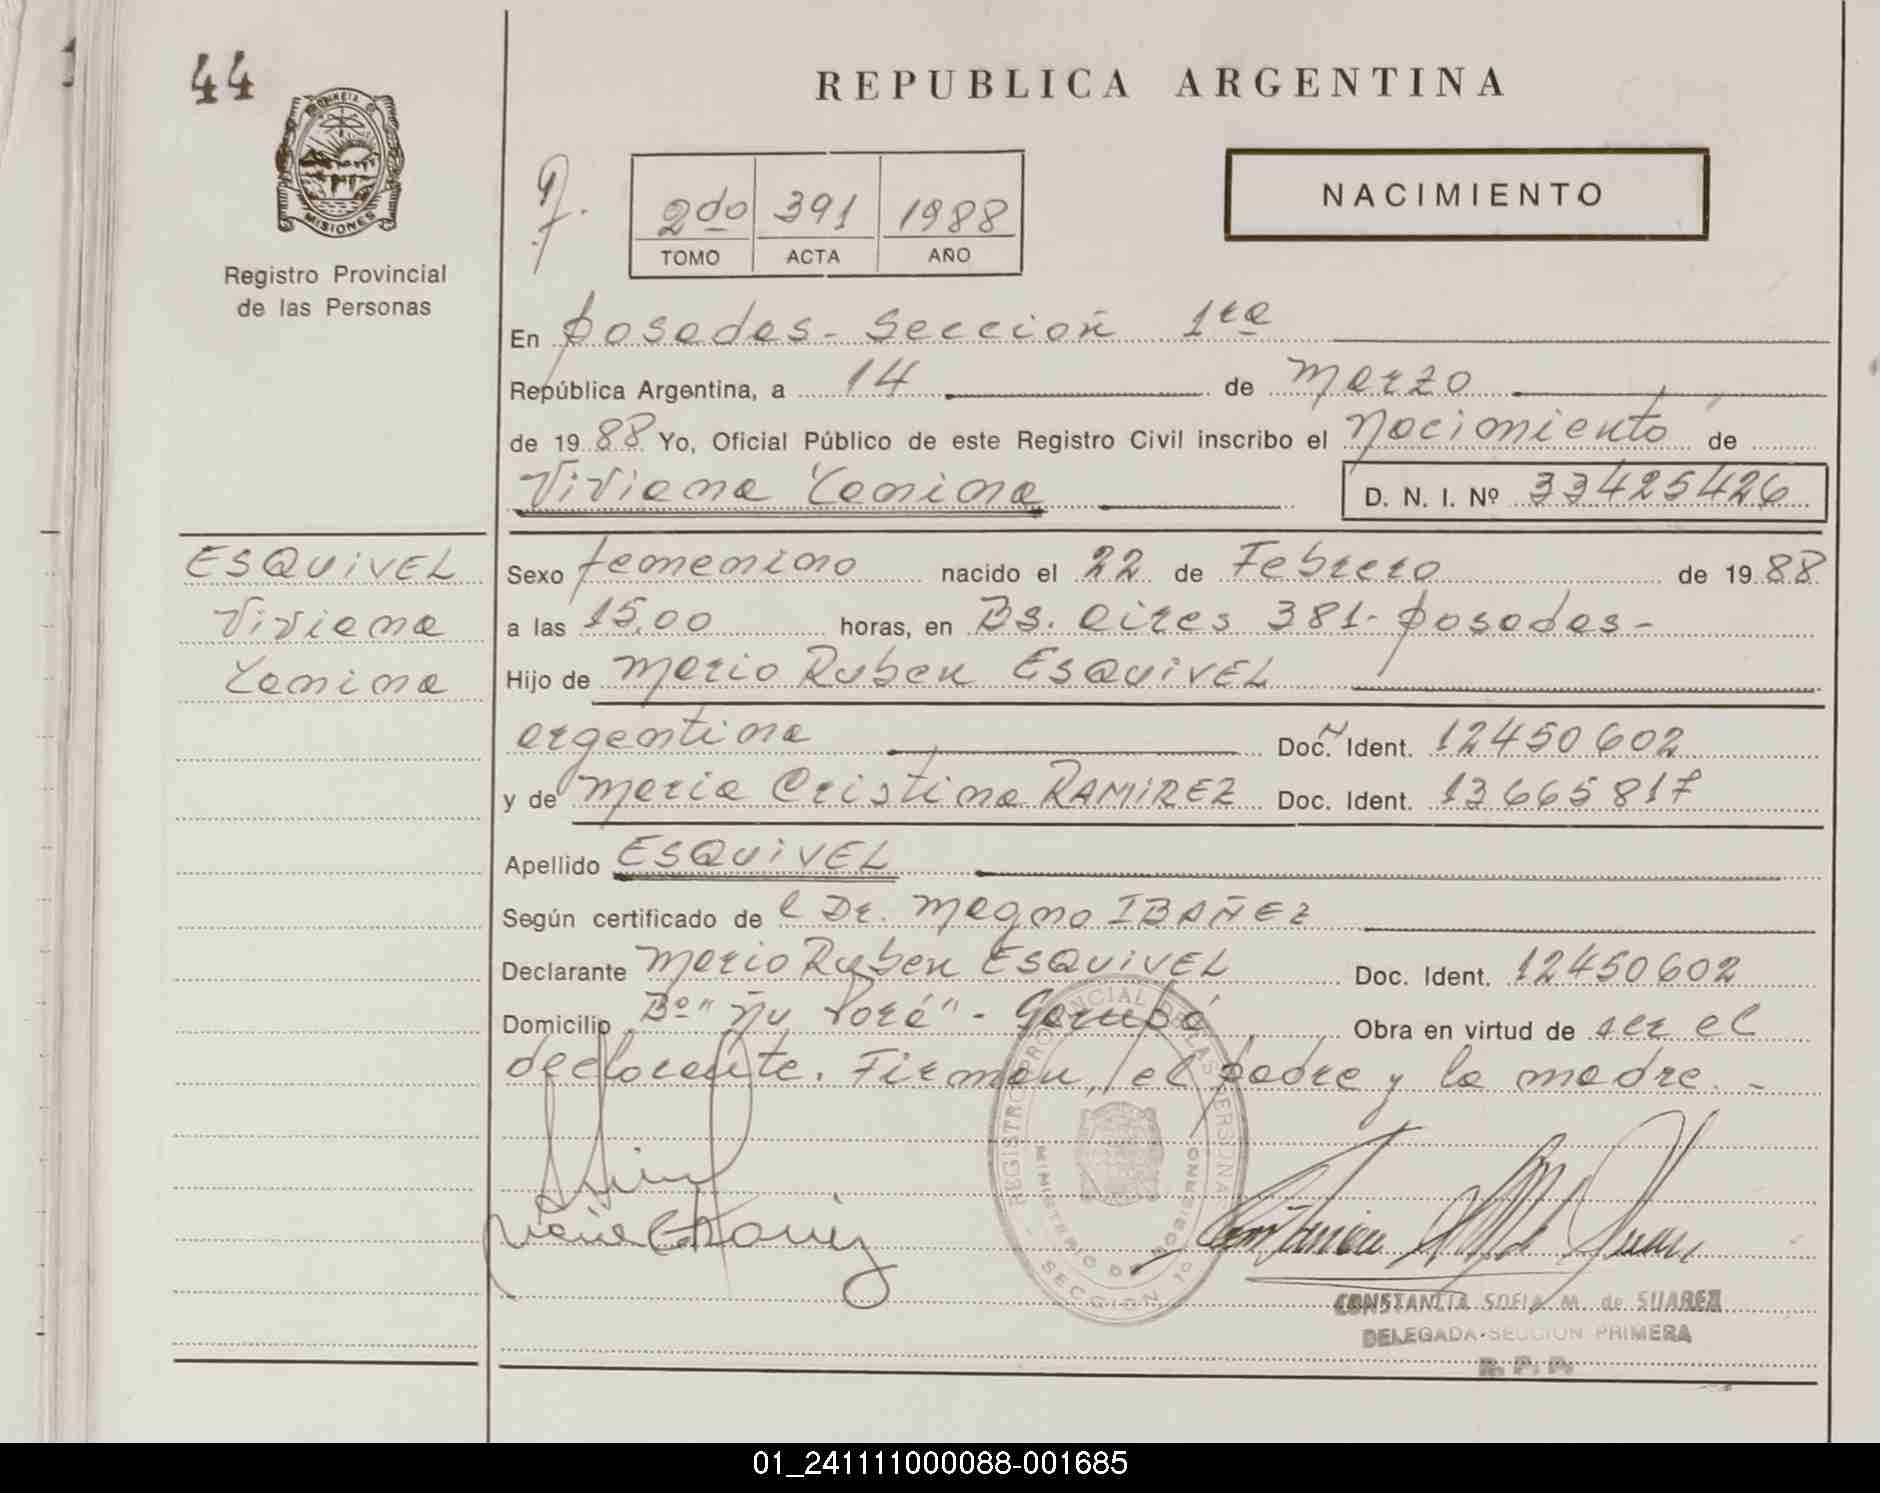 44
PROVINCIA D
MISIONES
Registro Provincial
de las Personas
REPUBLICA ARGENTINA
NACIMIENTO
2do 391 1988
TOMO ACTA AÑO
En posadas - sección 1ra
República Argentina, a 14 de marzo
de 1988 Yo, Oficial Público de este Registro Civil inscribo el nacimiento de
Viviana Yanina D. N. I. Nº 33425426
ESQUIVEL
Viviana
Yanina
Sexo femenino nacido el 22 de Febrero de 1988
a las 15,00 horas, en Bs. aires 381 - posadas -
Hijo de mario Ruben ESQUIVEL
argentina Doc. Ident. 12450602
y de maria Cristina RAMIREZ Doc. Ident. 13665817
Apellido ESQUIVEL
Según certificado de l Dr. magno IBAÑEZ
Declarante mario Ruben ESQUIVEL Doc. Ident. 12450602
Domicilio Bº "Ñu Porá" - Garupá Obra en virtud de ser el
declarante. Firman, el padre y la madre. -
REGISTRO PROVINCIAL DE LAS PERSONAS
MINISTERIO DE GOBIERNO
SECCION 1º
CONSTANCIA SOFIA M. de SUAREZ
DELEGADA - SECCION PRIMERA
R. P. P.
01_241111000088-001685